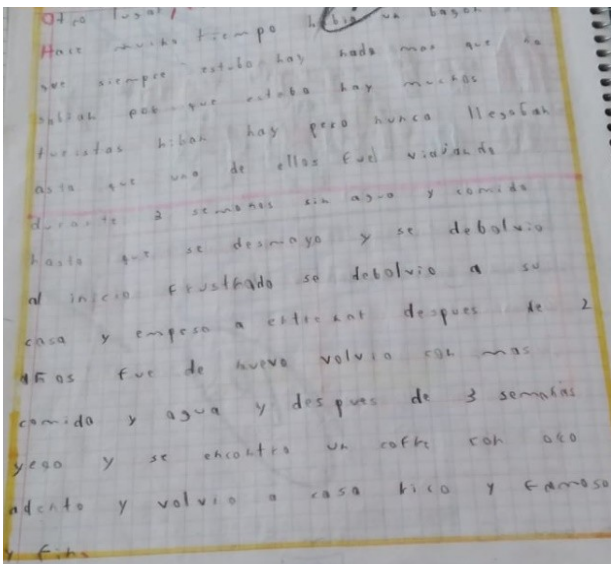 Otro lugar
Hace mucho tiempo habia un bagon
que siempre estubo hay nada mas que no
sabian por que estaba hay muchos
turistas hiban hay pero nunca llegaban
asta que uno de ellos fue viajando
durante 3 semanas sin agua y comida
hasta que se desmayo y se debolvio
al inicio frustrado se debolvio a su
casa y empeso a entrenar despues de 2
años fue de nuevo volvio con mas
comida y agua y despues de 3 semanas
yego y se encontro un cofre con oro
adento y volvio a casa rico y famoso
y fin.